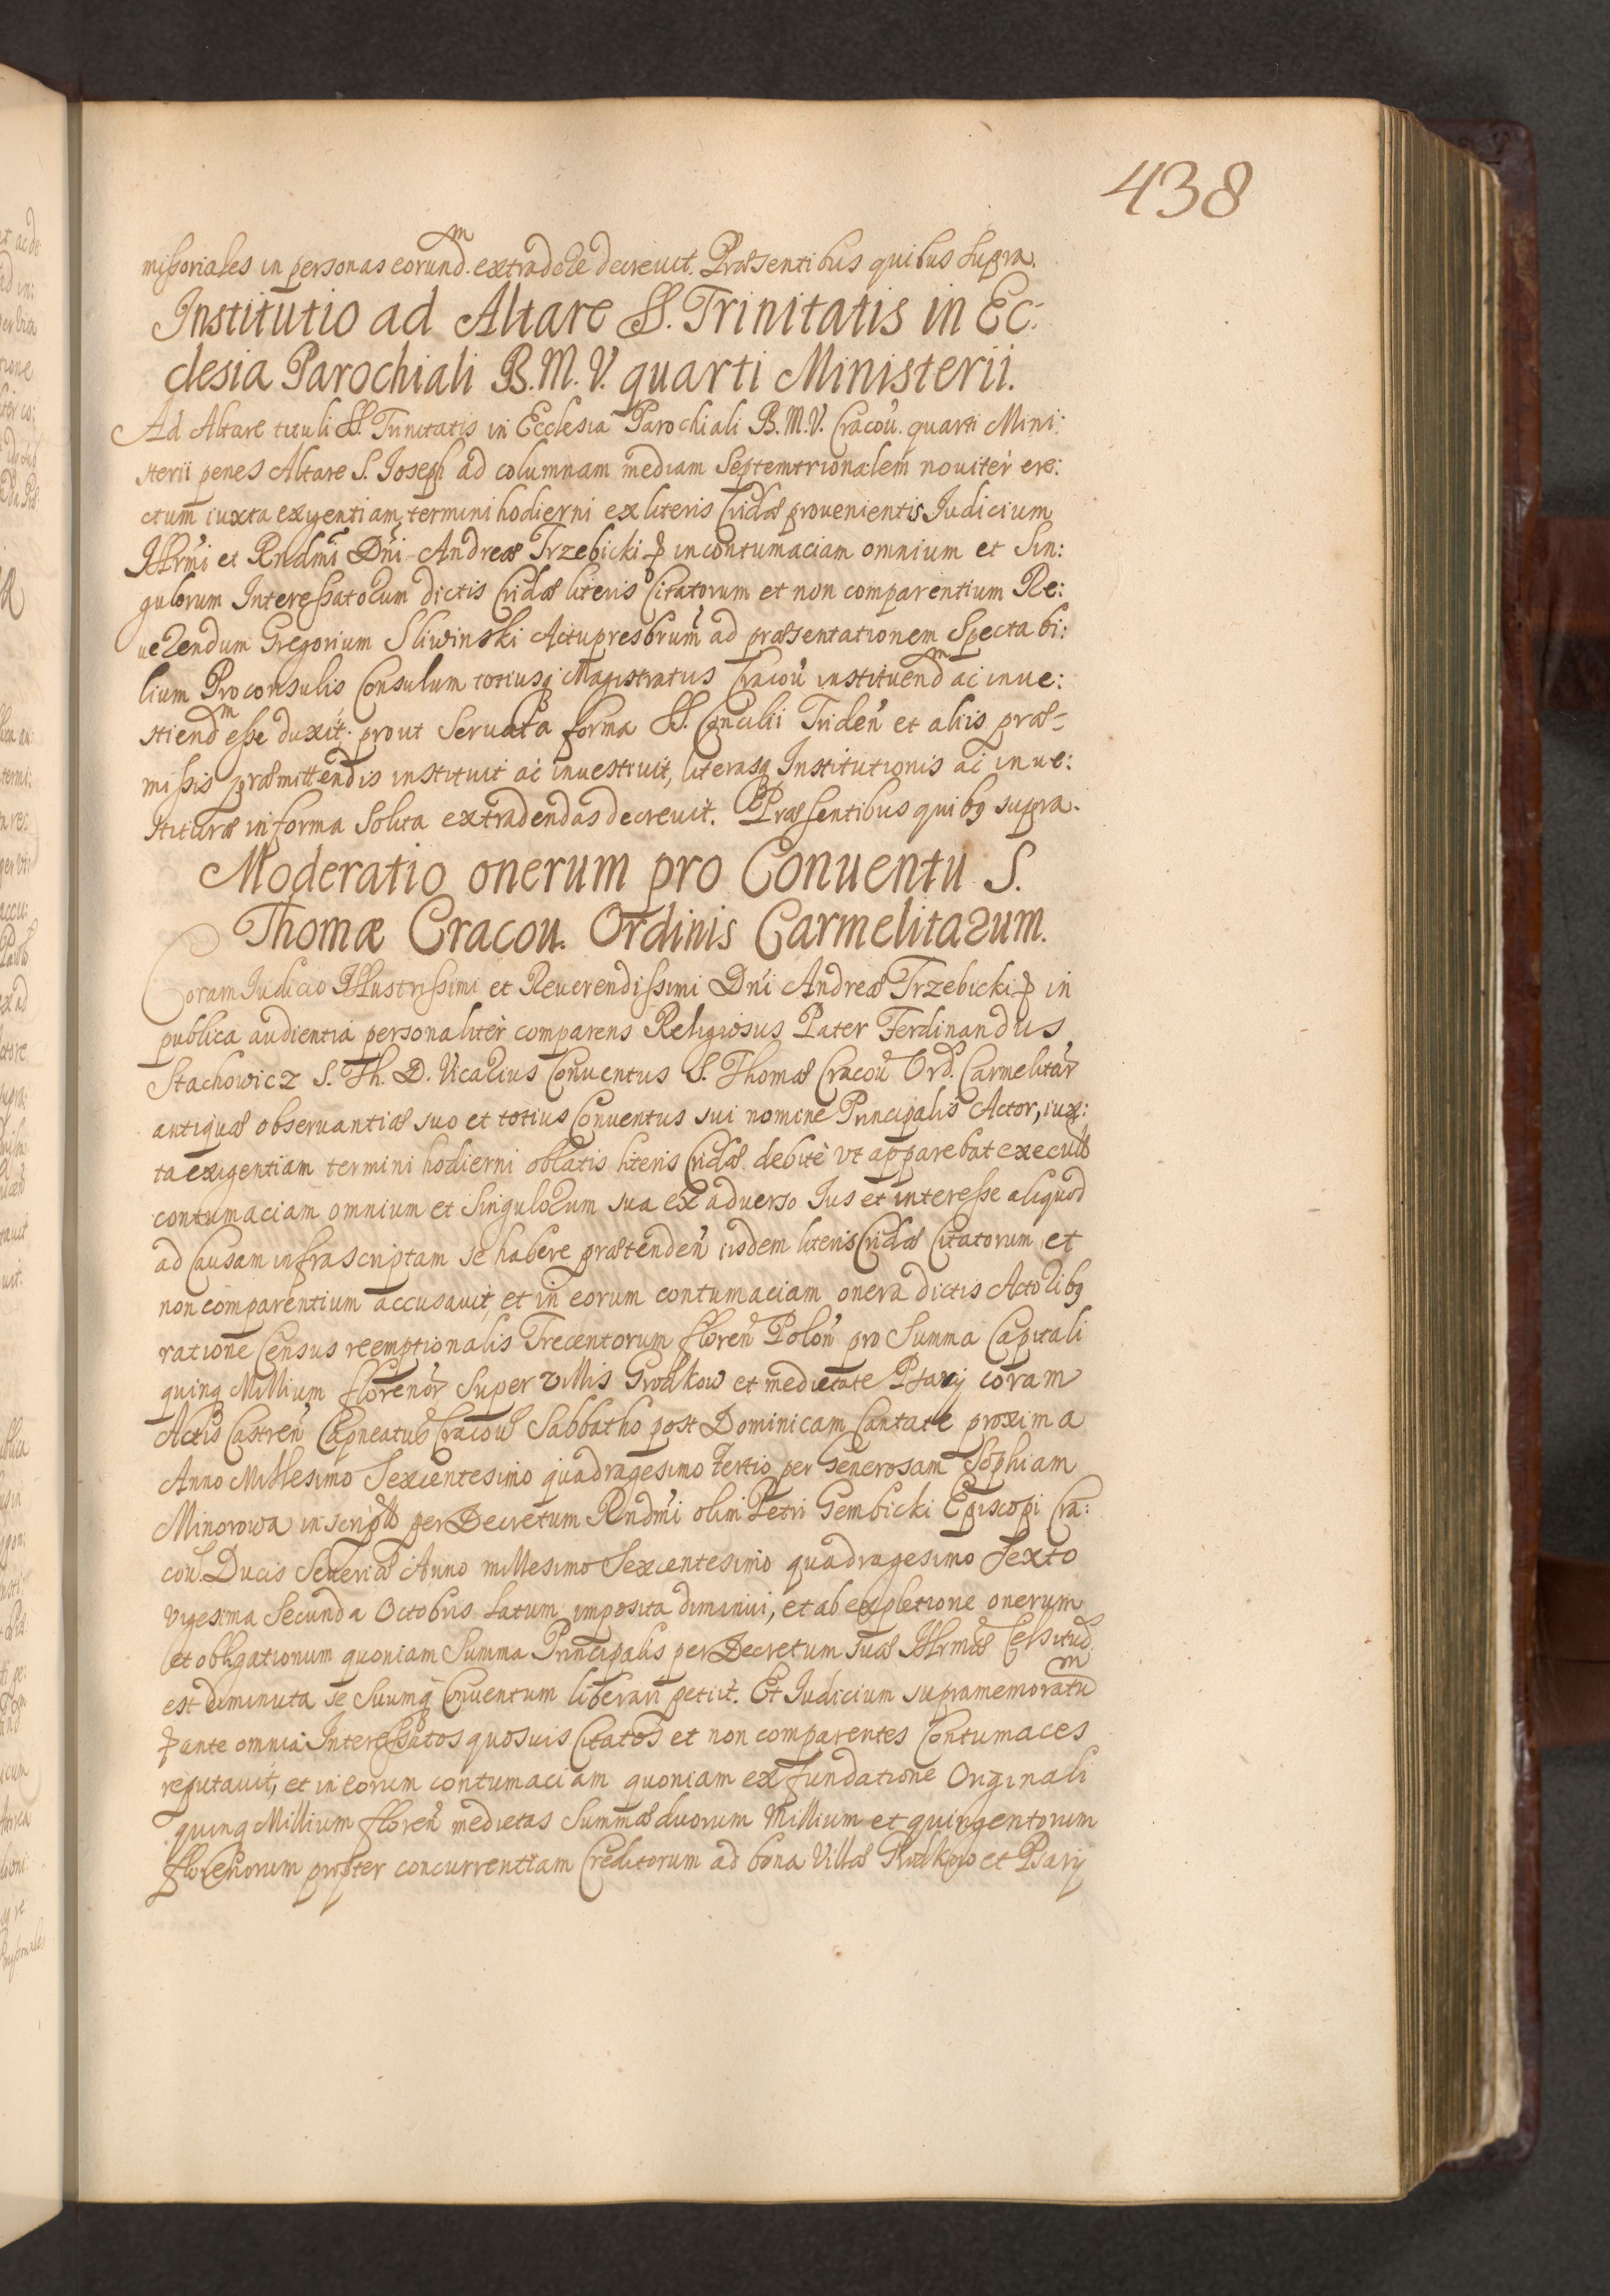 438
missoriales in personas eorund.m extradere decreuit. Præsentibus quibus supra.
Institutio ad Altare SS. Trinitatis in Ec:
clesia Parochiali B. M. V. quarti Ministerii.
Ad Altare tituli SS. Trinitatis in Ecclesia Parochiali B. M. V. Cracou. quarti Mini:
sterii penes Altare S. Joseph ad columnam mediam Septemtrionalem nouiter ere:
ctum iuxta exigentiam termini hodierni ex literis Cridæ prouenientis Judicium
Illrmi et Rndmi Dni Andreæ Trzebicki in contumaciam omnium et Sin:
gulorum Interessatorum dictis Cridæ literis Citatorum et non comparentium Re:
uerendum Gregorium Sliwinski Actupresbrum ad præsentationem Spectabi:
lium Proconsulis Consulum totiusq Magistratus Cracou instituendm ac inue:
stiendm esse duxit. prout Seruata forma SS. Concilii Triden et aliis præ=
missis præmittendis instituit ac inuestiuit, literasq Institutionis ac inue:
stituræ in forma Solita extradendas decreuit. Præsentibus quibq supra.
Moderatio onerum pro Conuentu S.
Thomæ Cracou. Ordinis Carmelitarum.
Coram Judicio Illustrissimi et Reuerendissimi Dni Andreæ Trzebicki in
publica audientia personaliter comparens Religiosus Pater Ferdinandus
Stachowicz S. Th. D. Vicarius Conuentus S. Thomæ Cracou Ord. Carmelitar
antiquæ obseruantiæ suo et totius Conuentus sui nomine Principalis Actor, iux:
ta exigentiam termini hodierni oblatis literis Cridæ debite vt apparebat executis
contumaciam omnium et Singulorum sua ex aduerso Jus et interesse aliquod
ad Causam infrascriptam se habere prætenden iisdem literis Cridæ Citatorum et
non comparentium accusauit, et in eorum contumaciam onera dictis Actoribq
ratione Census reemptionalis Trecentorum floren Polon pro Summa Capitali
quinq Millium florenor Super villis Grodkow et medietate Psary coram
Actis Castren Capneatus Cracou Sabbatho post Dominicam Cantate proxima
Anno Millesimo Sexcentesimo quadragesimo tertio per Generosam Sophiam
Minorowa inscriptis per Decretum Rndmi olim Petri Gembicki Episcopi Cra:
cou. Ducis Seueriæ Anno millesimo Sexcentesimo quadragesimo Sexto
vigesima Secunda Octobris latum imposita diminui, et ab expletione onerum
et obligationum quoniam Summa Principalis per Decretum suæ Illrmæ Celsitud.
est diminuta se Suumq Conuentum liberari petiit. Et Judicium supramemoratum
ante omnia Interessatos quosuis Citatos et non comparentes Contumaces
reputauit, et in eorum contumaciam quoniam ex fundatione Originali
quinq Millium floren medietas Summæ duorum Millium et quingentorum
florenorum propter concurrentiam Creditorum ad bona Villæ Grodkow et Psary